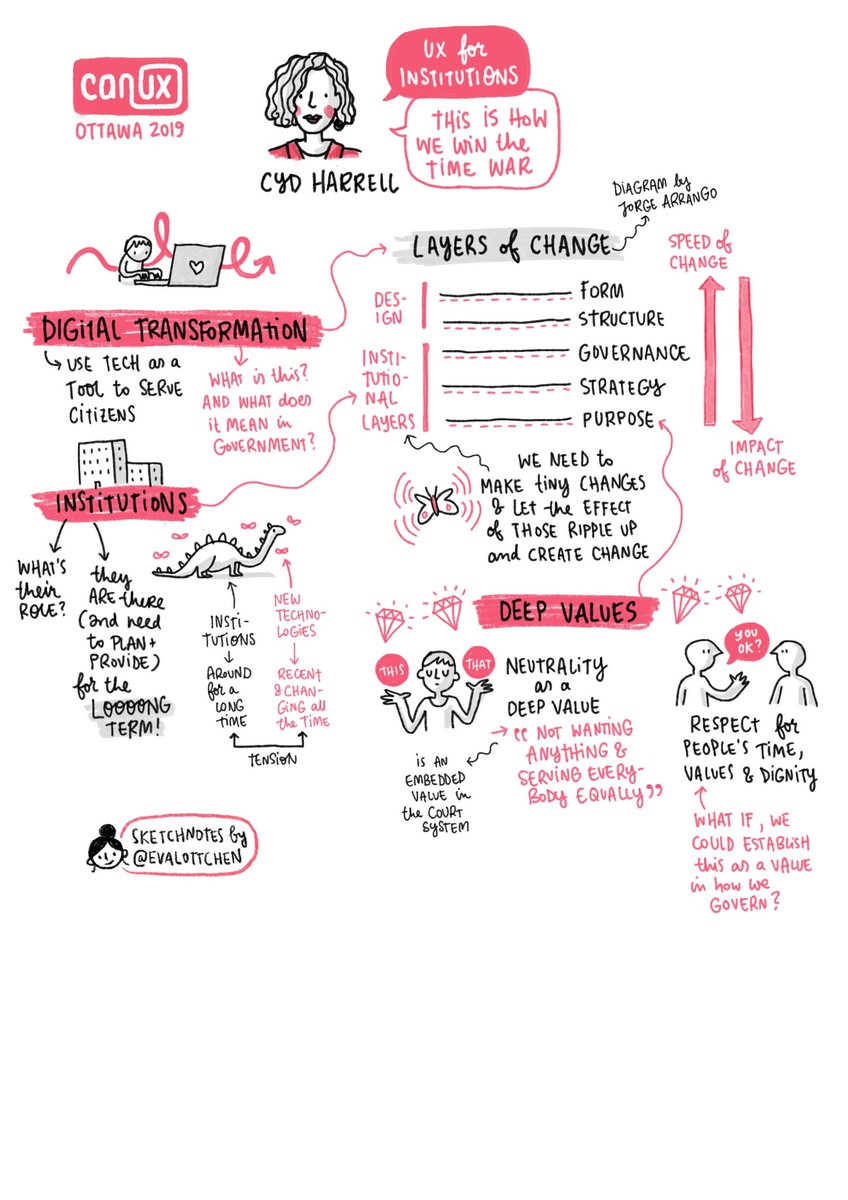 canux
OTTAWA 2019
CYD HARRELL
UX for
INSTITUTIONS
THIS IS HOW
WE WIN the
TIME WAR
DIGITAL TRANSFORMATION
USE TECH as a
TOOL to SERVE
CITIZENS
WHAT is this?
AND WHAT does
it MEAN in
GOVERNMENT?
LAYERS of CHANGE
DIAGRAM by
JORGE ARRANGO
SPEED of
CHANGE
DES-
IGN
FORM
STRUCTURE
INSTI-
TUTIO-
NAL
LAYERS
GOVERNANCE
STRATEGY
PURPOSE
IMPACT
of CHANGE
WE NEED to
MAKE tiny CHANGES
& LET the EFFECT
of THOSE RIPPLE UP
and CREATE CHANGE
INSTITUTIONS
WHAT'S
their
ROLE?
they
ARE there
(and need
to PLAN +
PROVIDE)
for the
LOOOONG
TERM!
INSTI-
TUTIONS
AROUND
for a
LONG
TIME
NEW
TECHNO-
LOGIES
RECENT
& CHAN-
GING all
the TIME
TENSION
DEEP VALUES
THIS
THAT
NEUTRALITY
as a
DEEP VALUE
“NOT WANTING
ANYTHING &
SERVING EVERY-
BODY EQUALLY”
is AN
EMBEDDED
VALUE in
the COURT
SYSTEM
YOU
OK?
RESPECT for
PEOPLE'S TIME,
VALUES & DIGNITY
WHAT IF, WE
COULD ESTABLISH
this as a VALUE
in how we
GOVERN?
SKETCHNOTES by
@EVALOTTCHEN